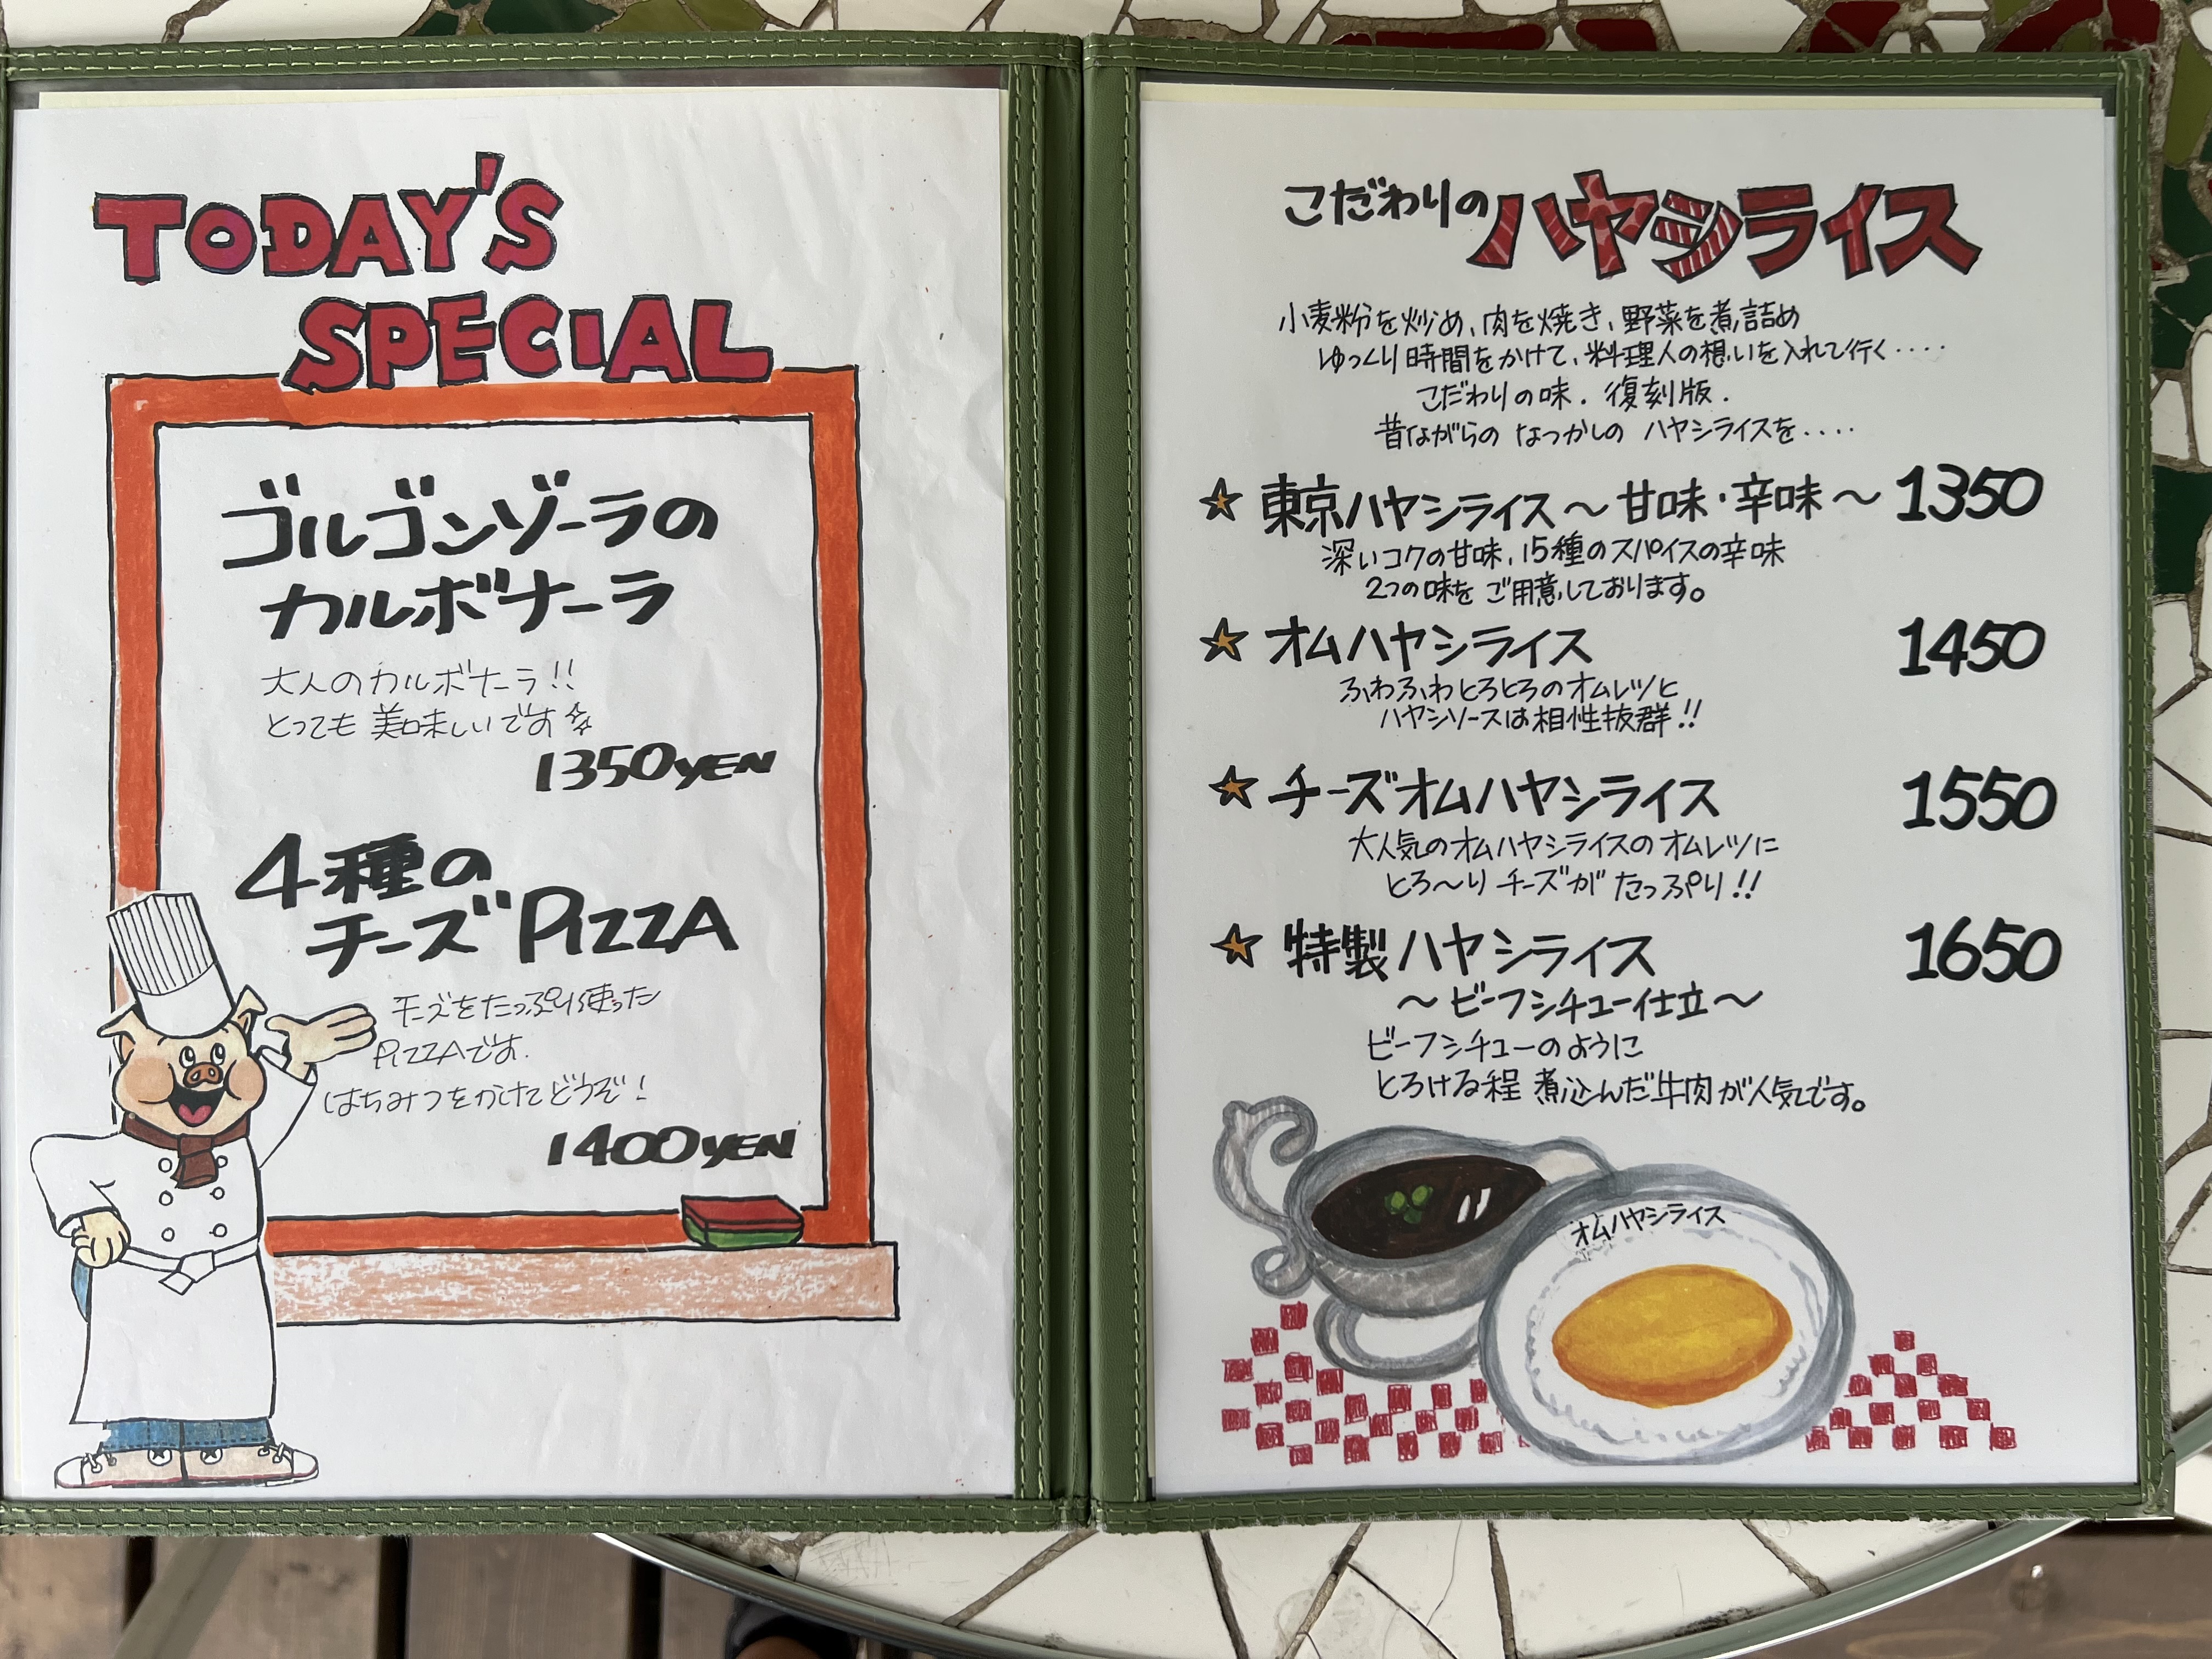 TODAY'S
SPECIAL
ゴルゴンゾーラの
カルボナーラ
大人のカルボナーラ!!
とっても美味しいです☆
1350YEN
4種の
チーズPIZZA
チーズをたっぷり使った
PIZZAです.
はちみつをかけてどうぞ!
1400YEN
こだわりのハヤシライス
小麦粉を炒め、肉を焼き、野菜を煮詰め
ゆっくり時間をかけて、料理人の想いを入れて行く····
こだわりの味.復刻版.
昔ながらのなつかしのハヤシライスを····
★東京ハヤシライス～甘味・辛味～ 1350
深いコクの甘味、15種のスパイスの辛味
2つの味をご用意しております。
★オムハヤシライス 1450
ふわふわとろとろのオムレツと
ハヤシソースは相性抜群!!
★チーズオムハヤシライス 1550
大人気のオムハヤシライスのオムレツに
とろ～りチーズがたっぷり!!
★特製ハヤシライス 1650
～ビーフシチュー仕立～
ビーフシチューのように
とろける程煮込んだ牛肉が人気です。
オムハヤシライス